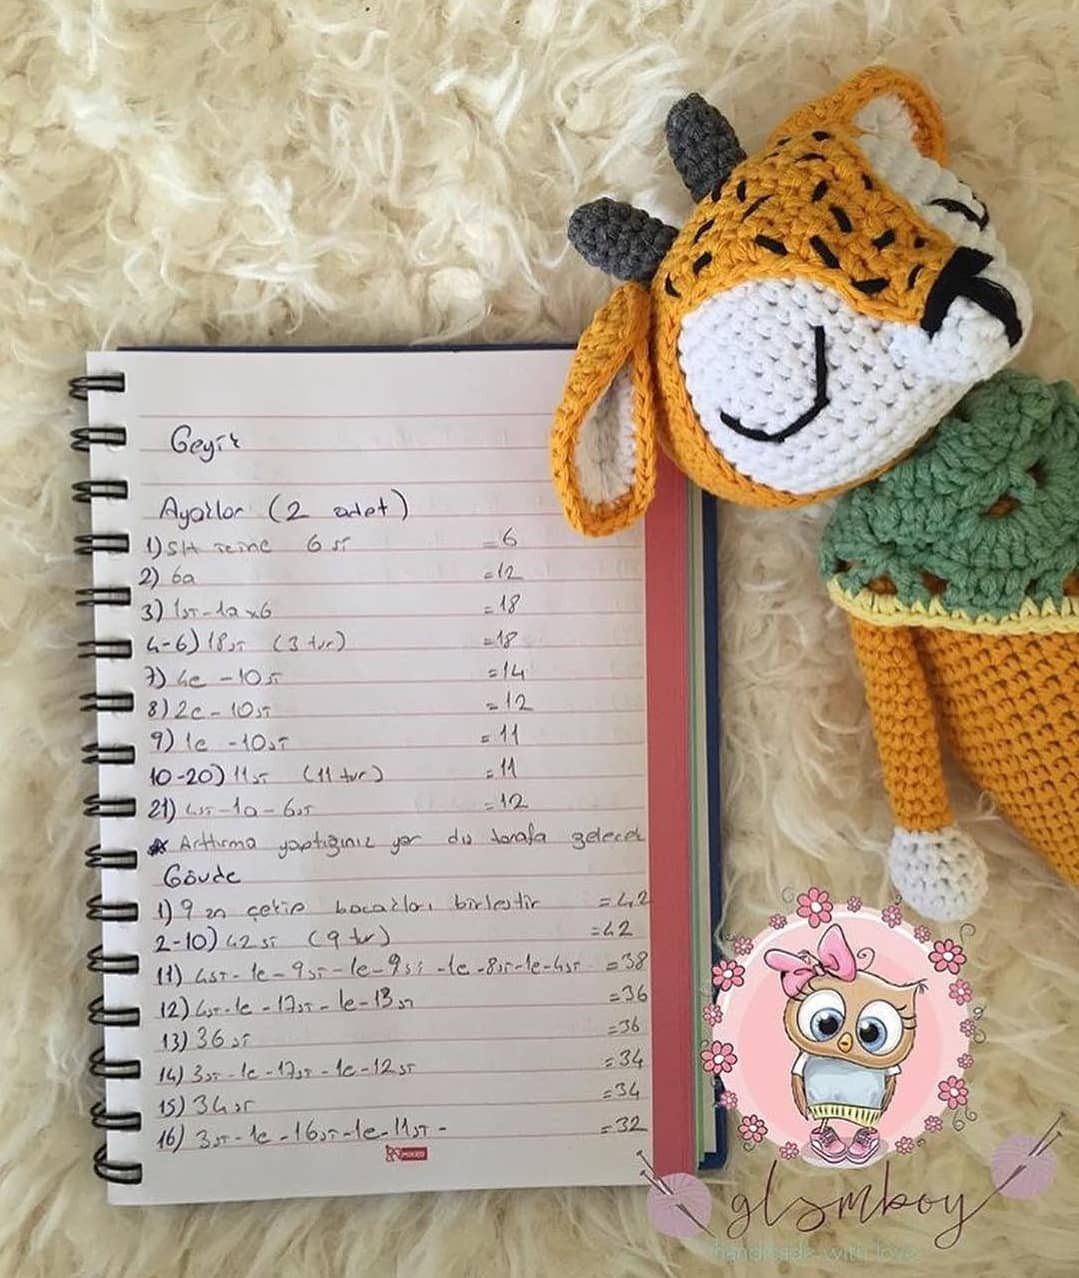 Geyik
Ayaklar (2 adet)
1) SH içine 6 sı =6
2) 6a =12
3) 1sı-1a x6 =18
4-6) 18sı (3 tur) =18
7) 4e -10sı =14
8) 2e -10sı =12
9) 1e -10sı =11
10-20) 11sı (11 tur) =11
21) 4sı-1a-6sı =12
* Arttırma yaptığınız yer dış tarafa gelecek
Gövde
1) 9 zn çekip bacakları birleştir =42
2-10) 42sı (9 tur) =42
11) 4sı-1e-9sı-1e-9sı-1e-8sı-1e-4sı =38
12) 4sı-1e-17sı-1e-13sı =36
13) 36sı =36
14) 3sı-1e-17sı-1e-12sı =34
15) 34sı =34
16) 3sı-1e-16sı-1e-11sı- =32
glsmboy
handmade with love